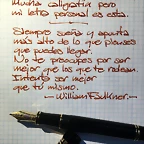 Mucha caligrafía pero
mi letra personal es esta.
Siempre sueña y apunta
más alto de lo que pienses
que puedes llegar.
No te preocupes por ser
mejor que los que te rodean.
Intenta ser mejor
que tú mismo.
—William Faulkner—